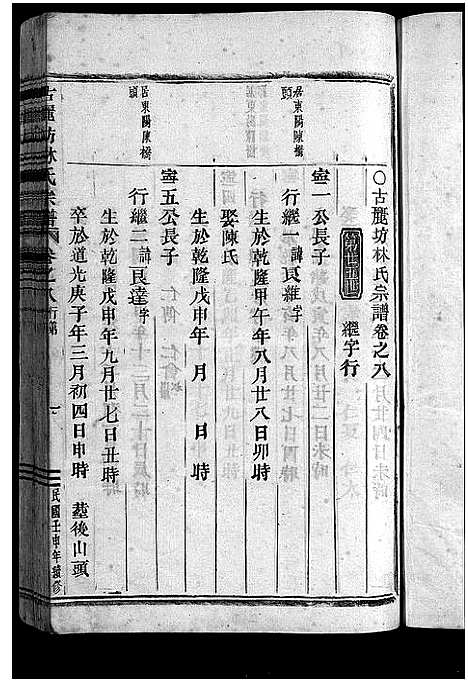 ○古麗坊林氏宗譜卷之八
繼字行
寧一公長子
居東陽陳櫥
行繼一諱良維字
生於乾隆甲午年八月廿八日卯時
娶陳氏
生於乾隆戊申年 月 日 時
寧五公長子
居東陽陳櫥頭
行繼二諱良達字
生於乾隆戊申年九月廿七日丑時
卒於道光庚子年三月初四日申時 墓後山頭
古麗坊林氏宗譜 卷之八 行第 一 民國壬申年續修